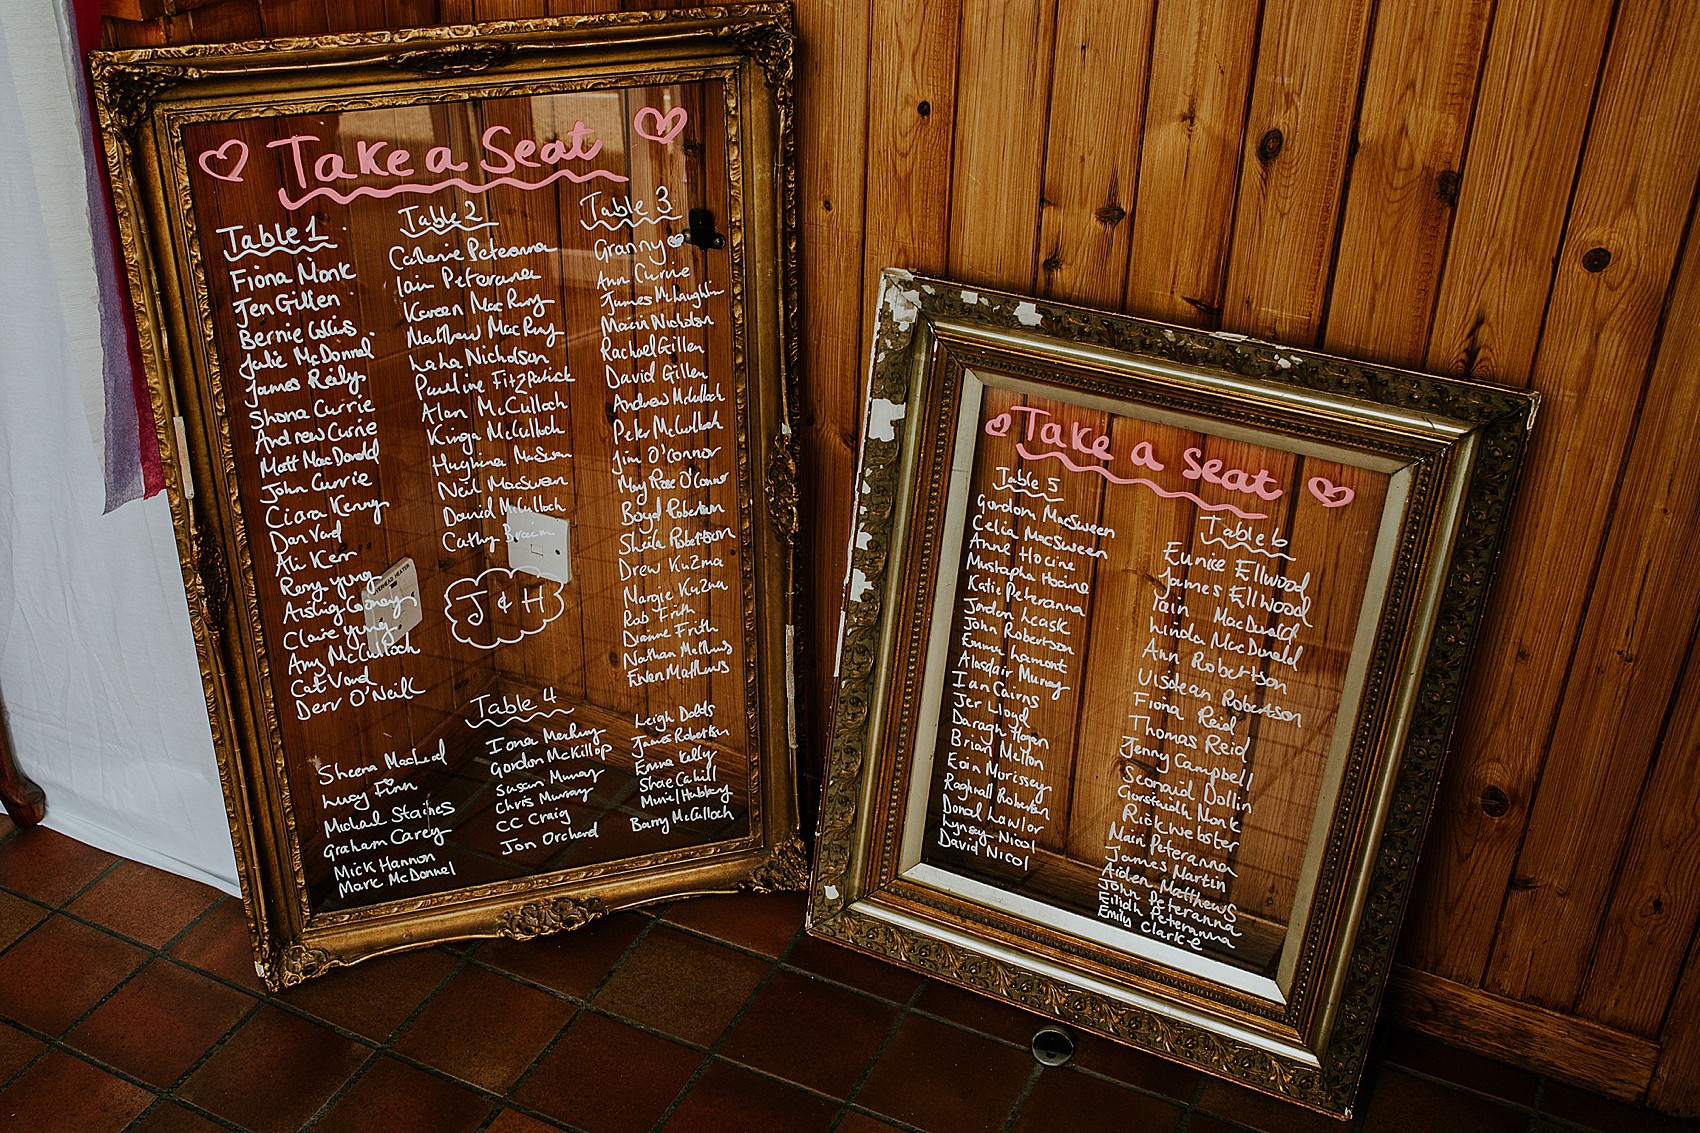 Take a Seat
Table 1
Fiona Monk
Jen Gillen
Bernie Collis
Julie McDonnel
James Reily
Shona Currie
Andrew Currie
Matt MacDonald
John Currie
Ciara Kenny
Dan Vard
Ali Kerr
Remy Yung
Aisling Cooney
Claire Yung
Amy McCulloch
Cat Vard
Derv O'Neill
Table 2
Catherine Peteranna
Iain Peteranna
Kareen MacRury
Matthew MacRury
Nicholson
Pauline Fitzpatrick
Alan McCulloch
Kinga McCulloch
Hughina MacSwan
Neil MacSwan
David McCulloch
Cathy
J & H
Table 3
Granny
Ann Currie
James McLaughlin
Mairi Nicholson
Rachael Gillen
David Gillen
Andrew McCulloch
Peter McCulloch
Jim O'Connor
Mary Rose O'Connor
Boyd Robertson
Sheila Robertson
Drew Kuzma
Margie Kuzma
Rob Frith
Dianne Frith
Nathan Matthews
Ewen Matthews
Table 4
Sheena MacLeod
Lucy Finn
Michael Staines
Graham Carey
Mick Hannon
Marc McDonnel
Iona MacRury
Gordon McKillop
Susan Murray
Chris Murray
CC Craig
Jon Orchard
Leigh Dodds
James Robertson
Emma Kelly
Shae Cahill
Muriel
Barry McCulloch
Take a seat
Table 5
Gordon MacSween
Celia MacSween
Anne Hocine
Mustapha Hocine
Katie Peteranna
Jordan Leask
John Robertson
Emma Lamont
Alasdair Murray
Ian Cairns
Jer Lloyd
Daragh Hogan
Brian Melton
Eoin Morrissey
Raghnall Robertson
Donal Lawlor
Lynsay Nicol
David Nicol
Table 6
Eunice Ellwood
James Ellwood
Iain MacDonald
Linda MacDonald
Ann Robertson
Uisdean Robertson
Fiona Reid
Thomas Reid
Jenny Campbell
Seonaid Dollin
Monk
Rick Webster
Mairi Peteranna
James Martin
Aiden Matthews
John Peteranna
Eilidh Peteranna
Emily Clarke